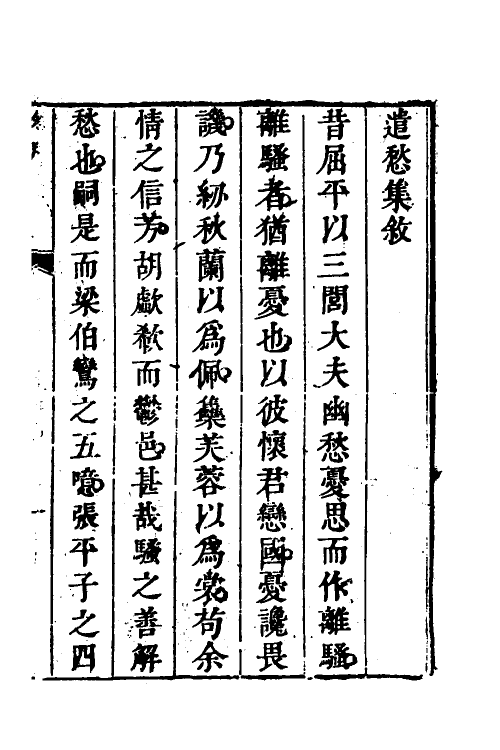 遣愁集敘
昔屈平以三閭大夫幽愁憂思而作離騷
離騷者猶離憂也以彼懷君戀國憂讒畏
譏乃紉秋蘭以爲佩𦾔芙蓉以爲裳苟余
情之信芳胡歔欷而鬱邑甚哉騷之善解
愁也嗣是而梁伯鸞之五噫張平子之四